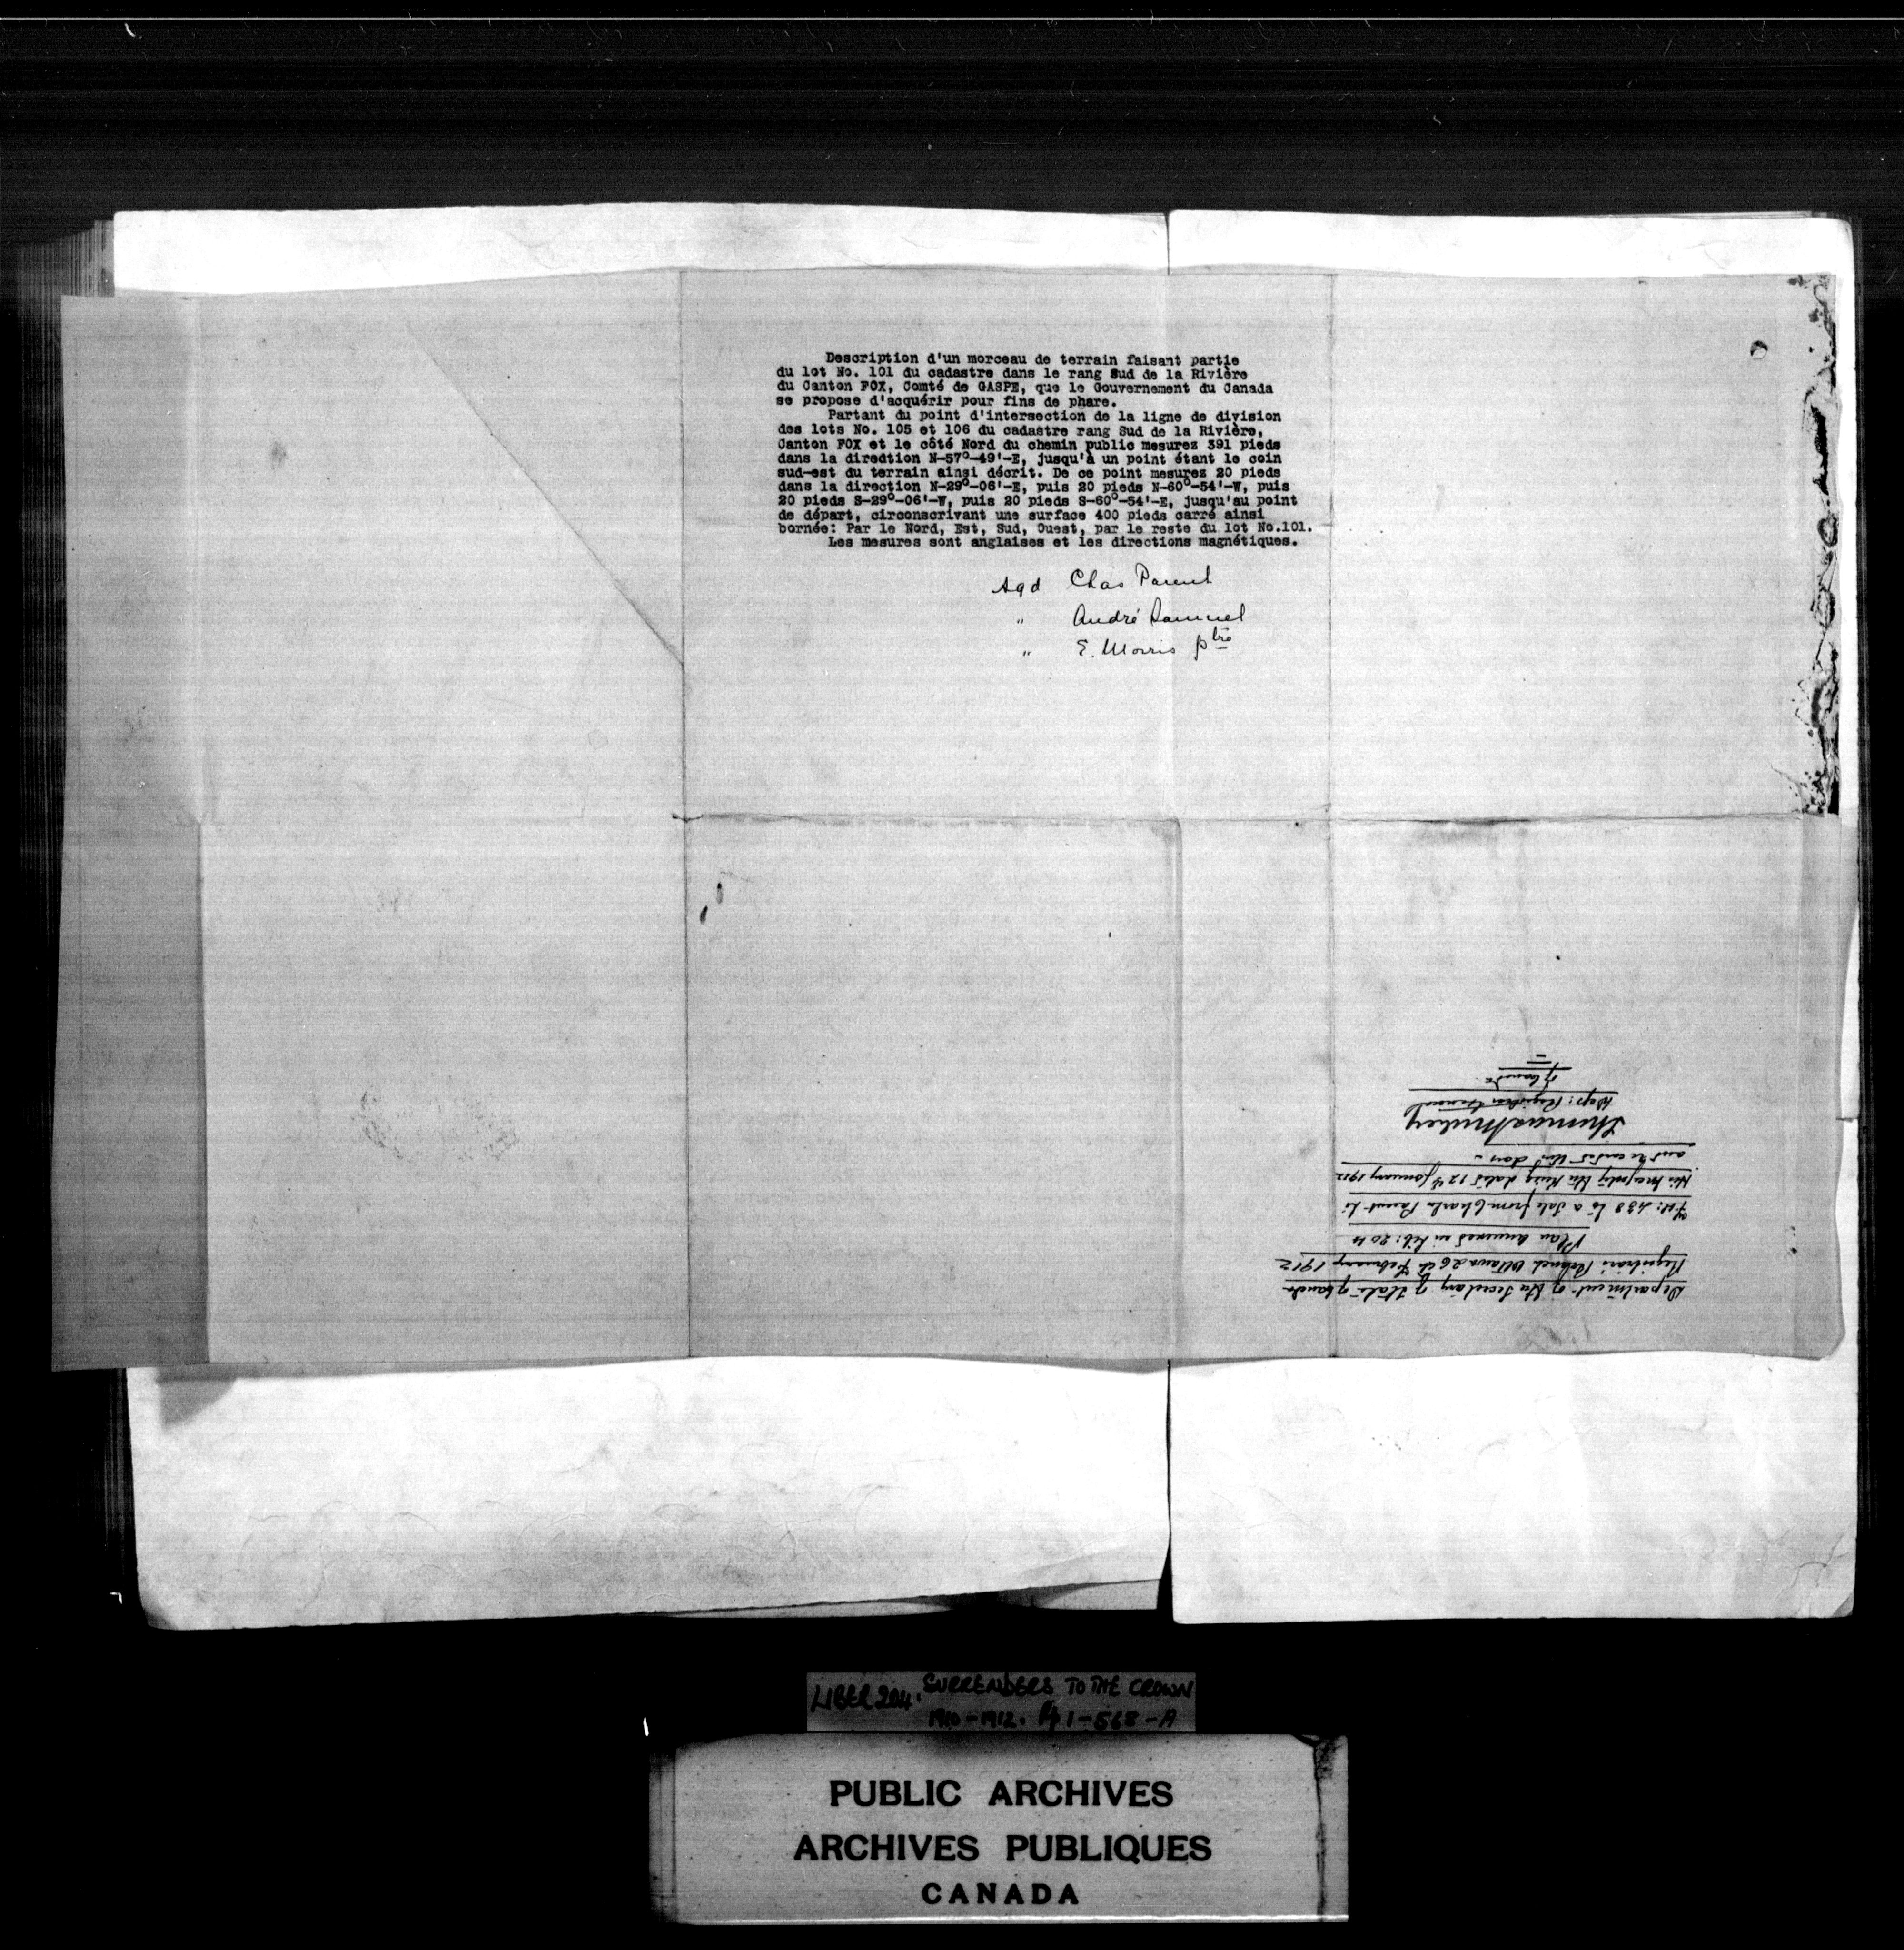 Description d'un morceau de terrain faisant partie
du lot No. 101 du cadastre dans le rang Sud de la Rivière
du Canton FOX, Comté de GASPE, que le Gouvernement du Canada
se propose d'acquérir pour fins de phare.
Partant du point d'intersection de la ligne de division
des lots No. 105 et 106 du cadastre rang Sud de la Rivière,
Canton FOX et le côté Nord du chemin public mesurez 391 pieds
dans la diredtion N-57°-49'-E, jusqu'à un point étant le coin
sud-est du terrain ainsi décrit. De ce point mesurez 20 pieds
dans la direction N-29°-06'-E, puis 20 pieds N-60°-54'-W, puis
20 pieds S-29°-06'-W, puis 20 pieds S-60°-54'-E, jusqu'au point
de départ, circonscrivant une surface 400 pieds carré ainsi
bornée: Par le Nord, Est, Sud, Ouest, par le reste du lot No.101.
Les mesures sont anglaises et les directions magnétiques.
Sgd Chas Parent
" André Samuel
" E. Morris ptre
Department of the Secretary of State of Canada
Registrar's Branch Ottawa 26th February 1912
Plan annexed in Lib: 204
fol: 438 to a Sale from Charles Parent to
His Majesty the King dated 12th January 1912
and recorded this day
Thomas Mulvey
Dep: Registrar General
of Canada
LIBER 204. SURRENDERS TO THE CROWN
1910-1912. Pp 1-568-A
PUBLIC ARCHIVES
ARCHIVES PUBLIQUES
CANADA